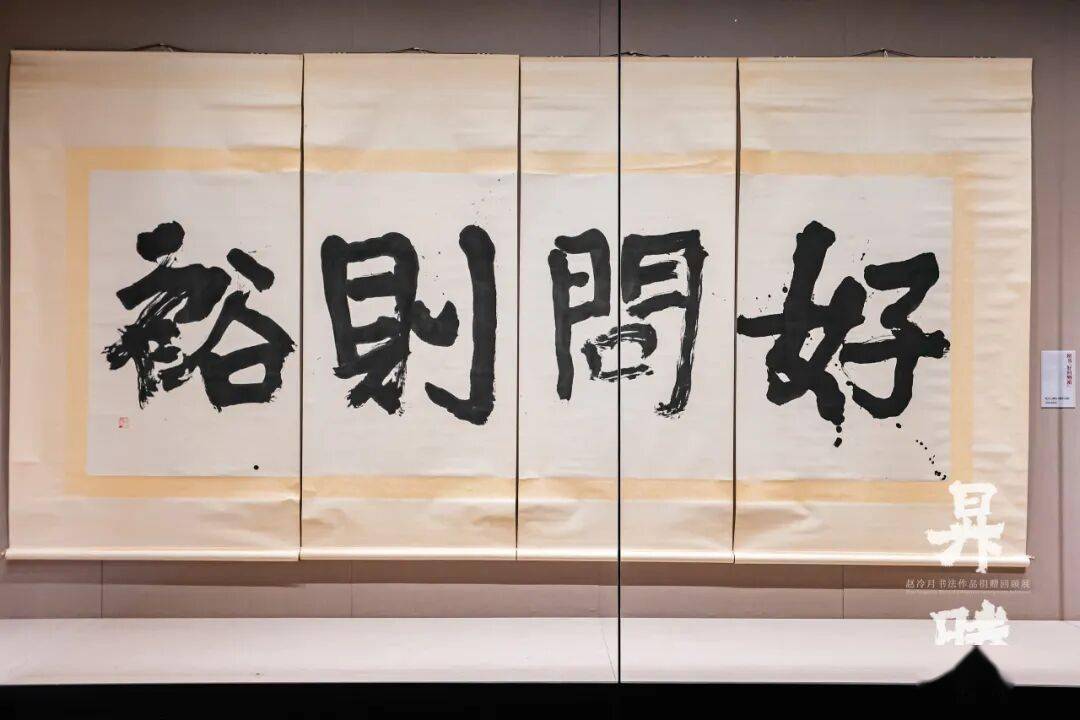 好問則裕
昇
赵冷月书法作品捐赠回顾展